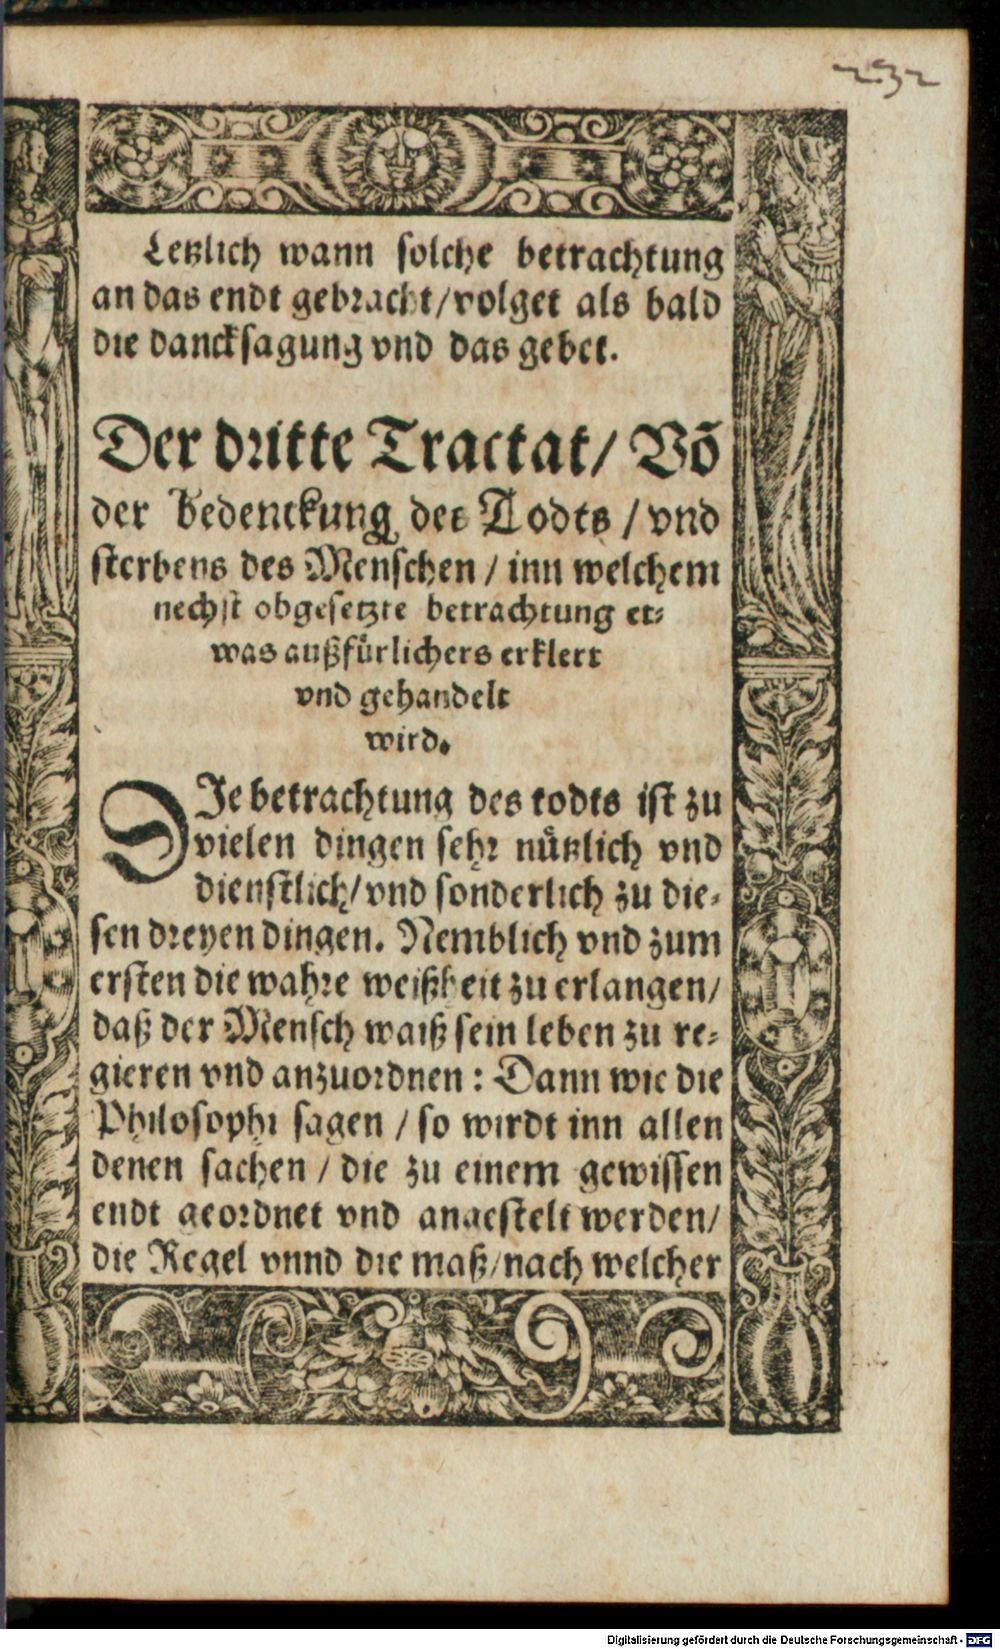 232
Letzlich wann solche betrachtung
an das endt gebracht/volget als bald
die dancksagung vnd das gebet.
Der dritte Tractat/ Võ
der Bedenckung des Todts / vnd
sterbens des Menschen / inn welchem
nechst obgesetzte betrachtung et⸗
was außfürlichers erklert
vnd gehandelt
wird.
DJe betrachtung des todts ist zu
vielen dingen sehr nützlich vnd
dienstlich/vnd sonderlich zu die⸗
sen dreyen dingen. Nemblich vnd zum
ersten die wahre weißheit zu erlangen/
daß der Mensch waiß sein leben zu re⸗
gieren vnd anzuordnen: Dann wie die
Philosophi sagen / so wirdt inn allen
denen sachen / die zu einem gewissen
endt geordnet vnd angestelt werden/
die Regel vnnd die maß/nach welcher
Digitalisierung gefördert durch die Deutsche Forschungsgemeinschaft - DFG